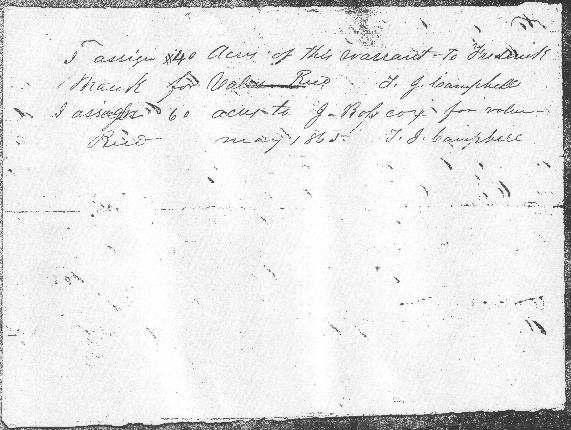 I assign 40 Acres of this warrant to Fredrick
Mauk for Value Recd T. J. Campbell
I assign 60 acres to J. Rob cox for value
Recd may 1865 T. J. Campbell